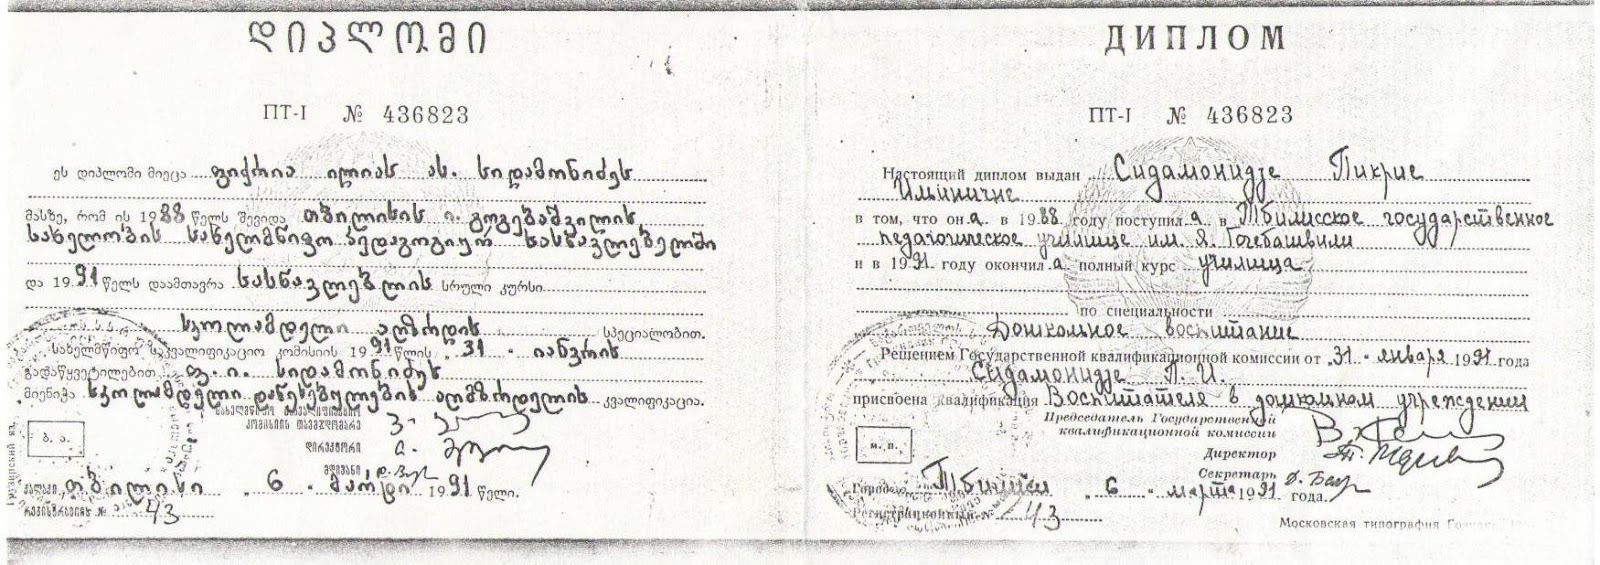 დიპლომი
ПТ-I № 436823
ეს დიპლომი მიეცა ფიქრია ილიას ას. სიდამონიძეს
მასზე, რომ ის 1988 წელს შევიდა თბილისის ი. გოგებაშვილის
სახელობის სახელმწიფო პედაგოგიურ სასწავლებელში
და 1991 წელს დაამთავრა სასწავლებლის სრული კურსი
სკოლამდელი აღზრდის სპეციალობით.
სახელმწიფო საკვალიფიკაციო კომისიის 1991 წლის „31“ იანვრის
გადაწყვეტილებით ფ. ი. სიდამონიძეს
მიენიჭა სკოლამდელი დაწესებულების აღმზრდელის კვალიფიკაცია.
სახელმწიფო საკვალიფიკაციო
კომისიის თავმჯდომარე
დირექტორი
ბ. ა.
მდივანი
ქალაქი თბილისი „6“ მარტი 1991 წელი.
რეგისტრაციის № 43
ДИПЛОМ
ПТ-I № 436823
Настоящий диплом выдан Сидамонидзе Пикрие
Ильиничне
в том, что он а в 1988 году поступил а в Тбилисское государственное
педагогическое училище им. Я. Гогебашвили
и в 1991 году окончил а полный курс училища
по специальности
Дошкольное воспитание
Решением Государственной квалификационной комиссии от „31“ января 1991 года
Сидамонидзе П. И.
присвоена квалификация Воспитателя в дошкольном учреждении
Председатель Государственной
квалификационной комиссии
м. п.
Директор
Секретарь
Город Тбилиси „6“ марта 1991 года.
Регистрационный № 43
Московская типография